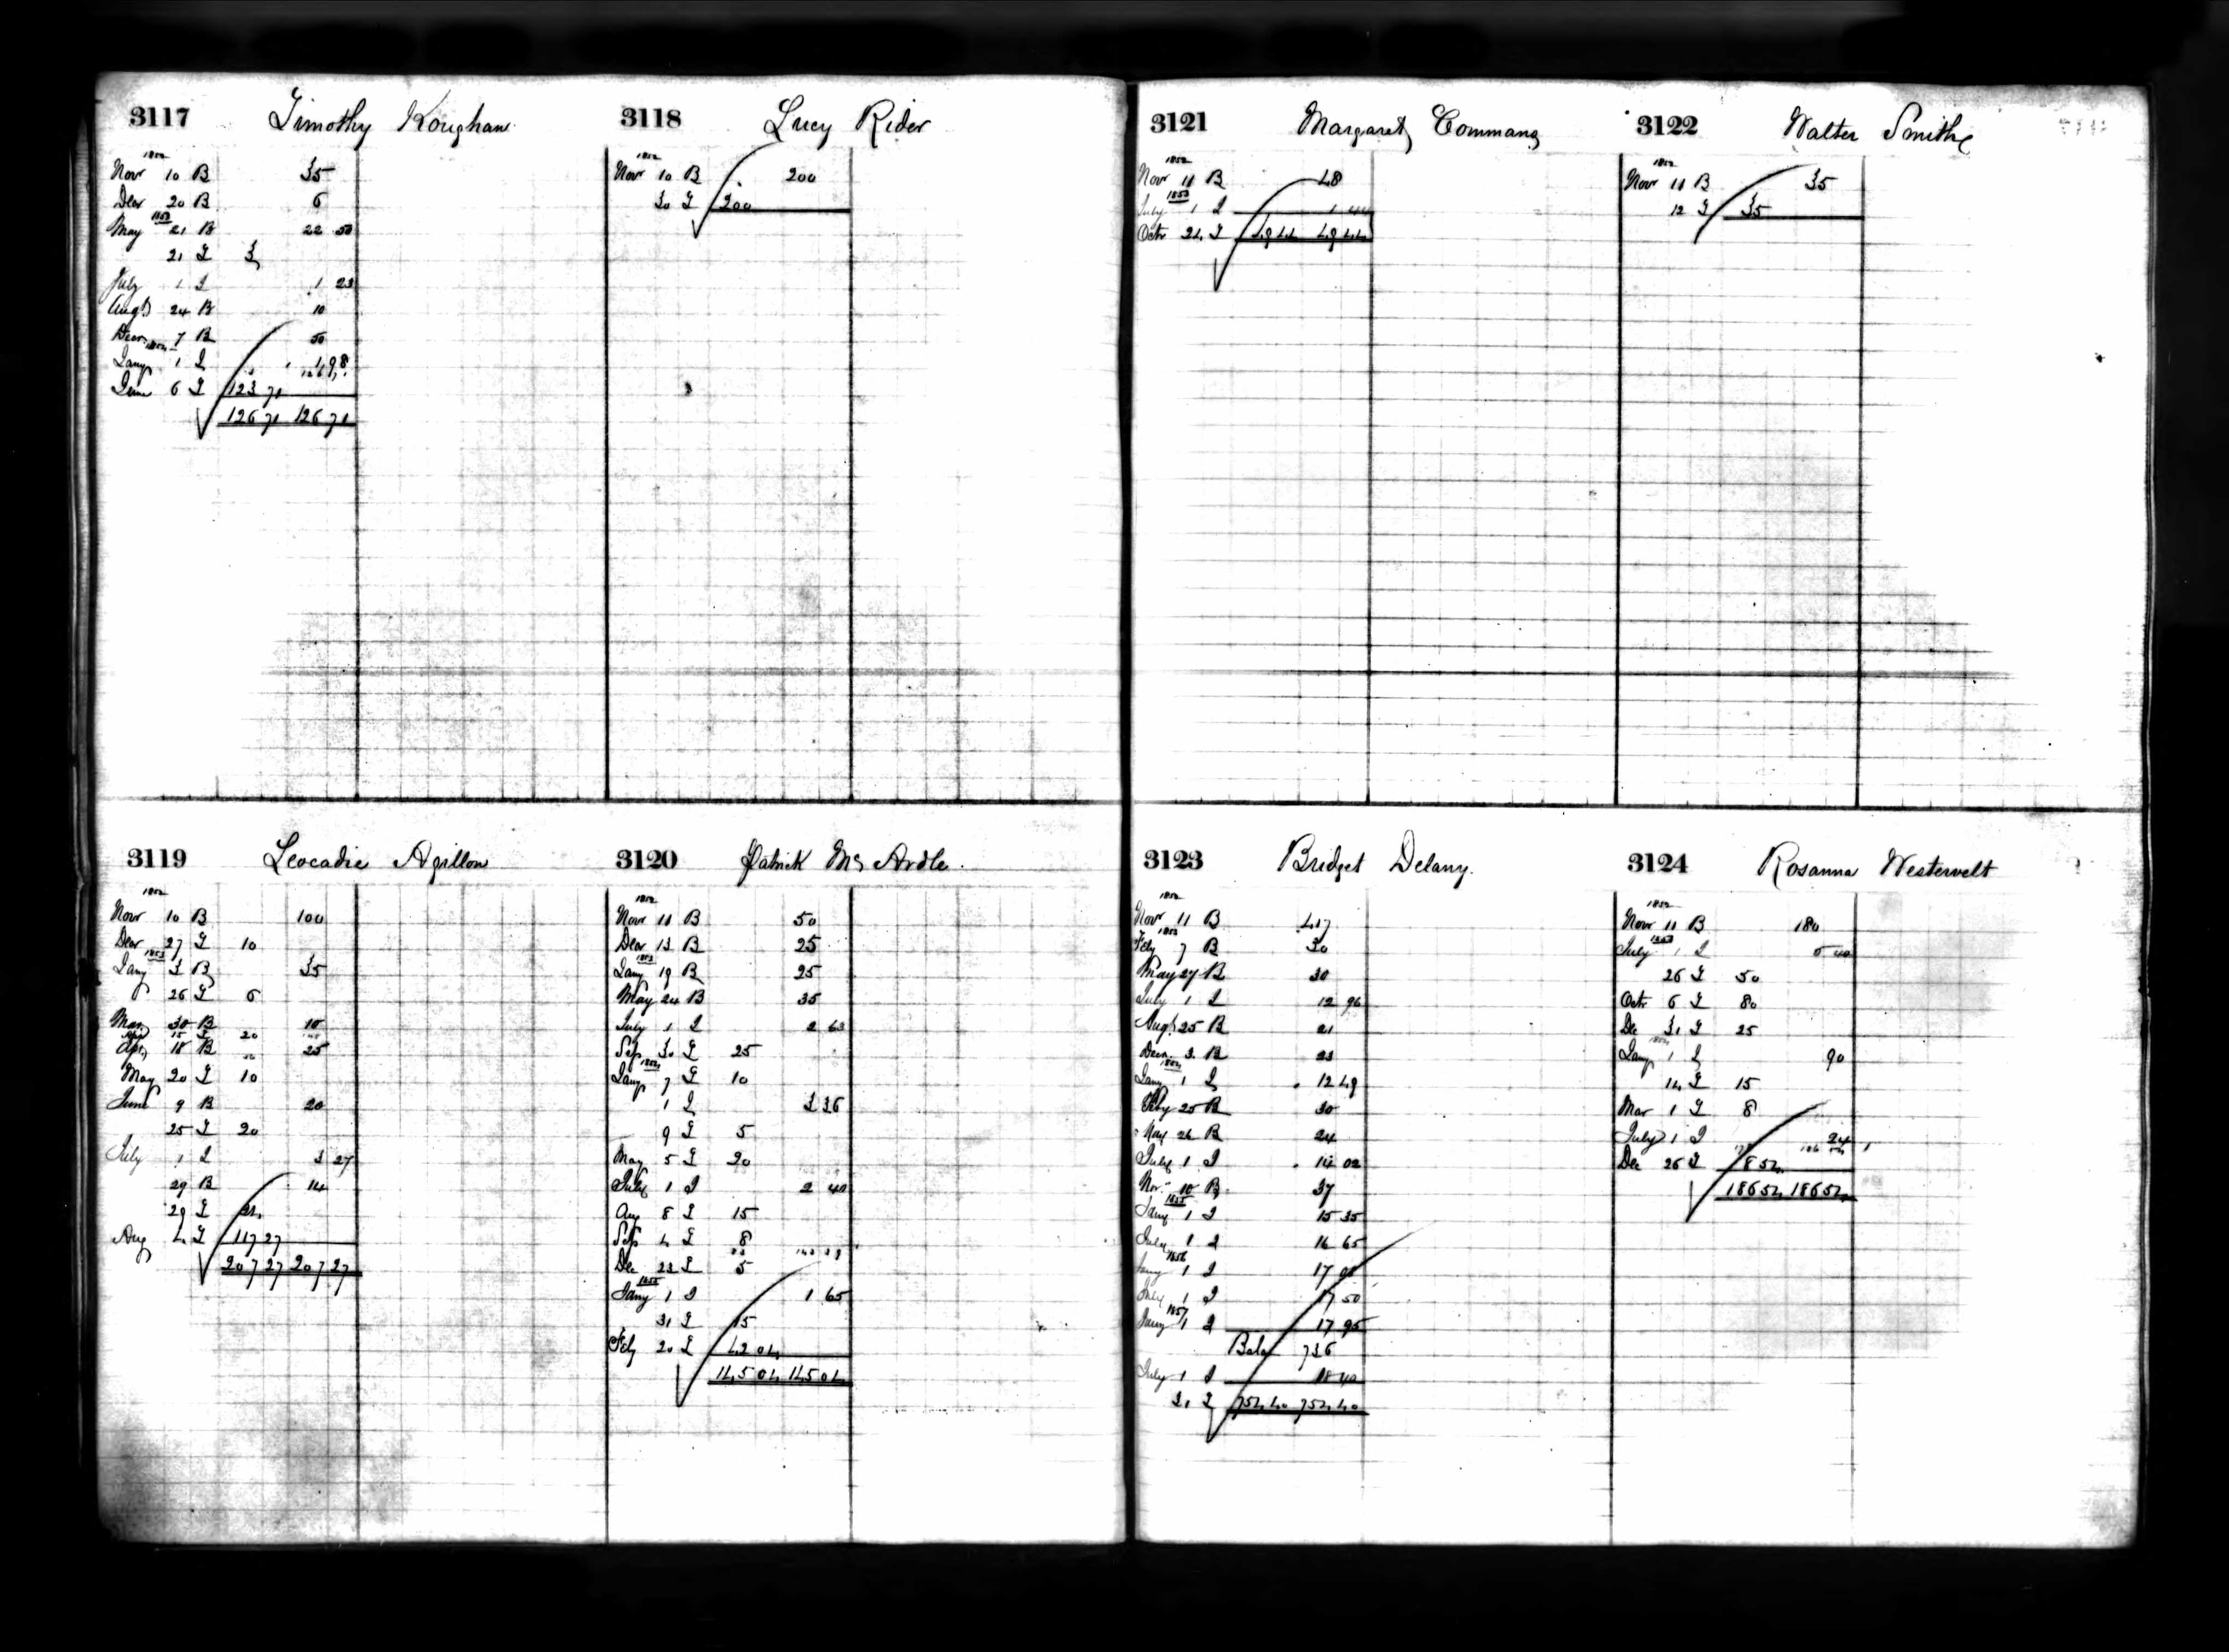 3117 Timothy Koughan
1852
Nov 10 B 35
Decr 20 B 6
1853
May 21 B 22 50
21 I 3
July 1 I 1 23
Augt 24 B 10
Decr 7 B 50
1854
Jany 1 I 1 98
June 6 I 123 71
126 71 126 71
3118 Lucy Rider
1852
Nov 10 B 200
30 I 200
3119 Leocadie Agillon
1852
Nov 10 B 100
Decr 27 I 10
1853
Jany 3 B 35
26 I 6
Mar 30 B 10
15 I 20
Apr 18 B 25
May 20 I 10
June 9 B 20
25 I 20
July 1 I 3 27
29 B 14
29 I
Aug 4 I 117 27
207 27 207 27
3120 Patrick Mc Ardle
1852
Nov 11 B 50
Decr 13 B 25
1853
Jany 19 B 25
May 24 B 35
July 1 I 2 63
Sep 30 I 25
1854
Jany 7 I 10
1 I 3 36
9 I 5
May 5 I 20
July 1 I 2 40
Aug 8 I 15
Sep 4 I 8
Dec 23 I 5
1855
Jany 1 I 1 65
31 I 15
Feby 20 I 42 04
145 04 145 04
3121 Margaret Commans
1852
Nov 11 B 48
1853
July 1 I 1 44
Octr 24 I 49 44 49 44
3122 Walter Smith
1852
Nov 11 B 35
12 I 35
3123 Bridget Delany
1852
Nov 11 B 417
1853
Feby 7 B 30
May 27 B 30
July 1 I 12 96
Augt 25 B 21
Decr 3 B 23
1854
Jany 1 I 12 49
Feby 25 B 30
May 26 B 24
July 1 I 14 02
Nov 10 B 37
1855
Jany 1 I 15 35
July 1 I 16 65
1856
Jany 1 I 17
July 1 I 17 50
1857
Jany 1 I 17 95
Bala 736
July 1 I 18 40
31 I 754 40 754 40
3124 Rosanna Westervelt
1852
Nov 11 B 180
1853
July 1 I 5 40
26 I 50
Octr 6 I 80
Dec 31 I 25
1854
Jany 1 I 90
14 I 15
Mar 1 I 8
July 1 I 24
Dec 26 I 8 54
186 54 186 54